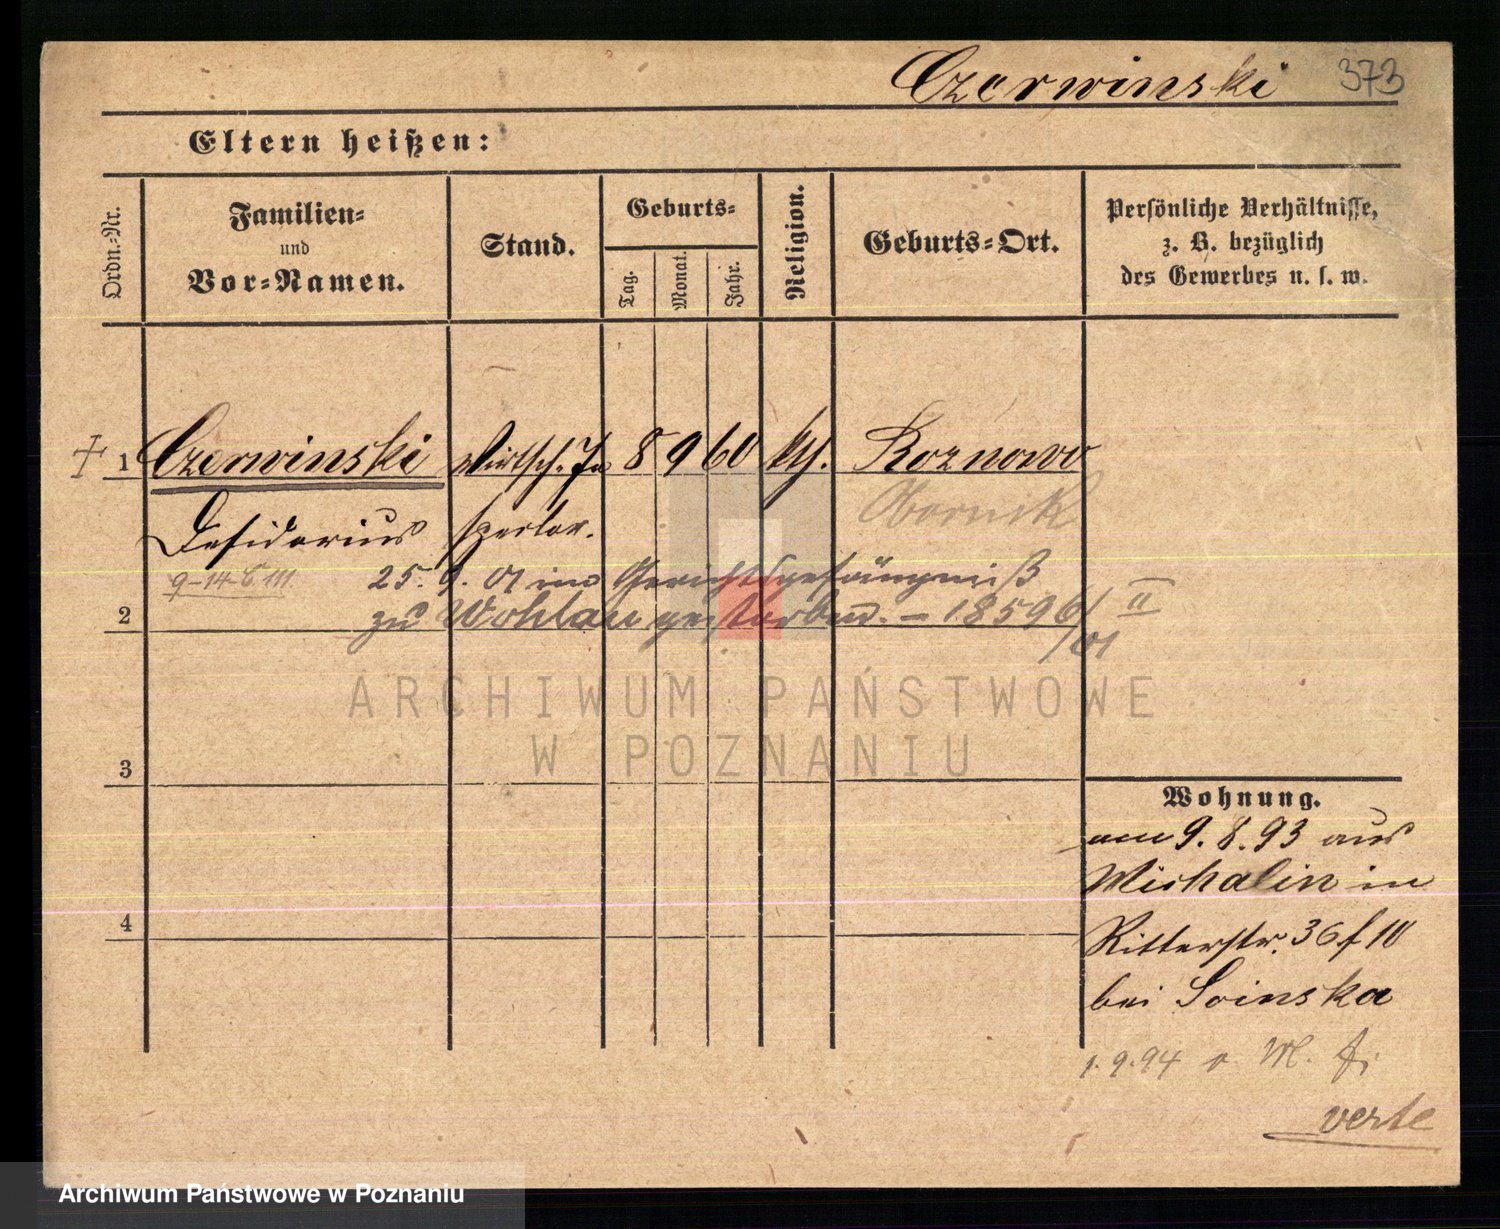 Czerwinski 373
Eltern heißen:
Ordn.=Nr.
Familien=
und
Vor=Namen.
Stand.
Geburts=
Tag.
Monat.
Jahr.
Religion.
Geburts=Ort.
Persönliche Verhältnisse,
z. B. bezüglich
des Gewerbes u. s. w.
1 Czerwinski Wirtsch. In 8 9 60 kth. Roznowo
Desiderius spector. Obornik
9-14-6 III.
25. 9. 01 im Gerichtsgefängniß
zu Wohlau gestorben. – 18596/01 II
2
3
4
ARCHIWUM PAŃSTWOWE
W POZNANIU
Wohnung.
am 9. 8. 93 aus
Michalin in
Ritterstr. 36 f 10
bei Soinska
1. 9. 94 M.
verte
Archiwum Państwowe w Poznaniu